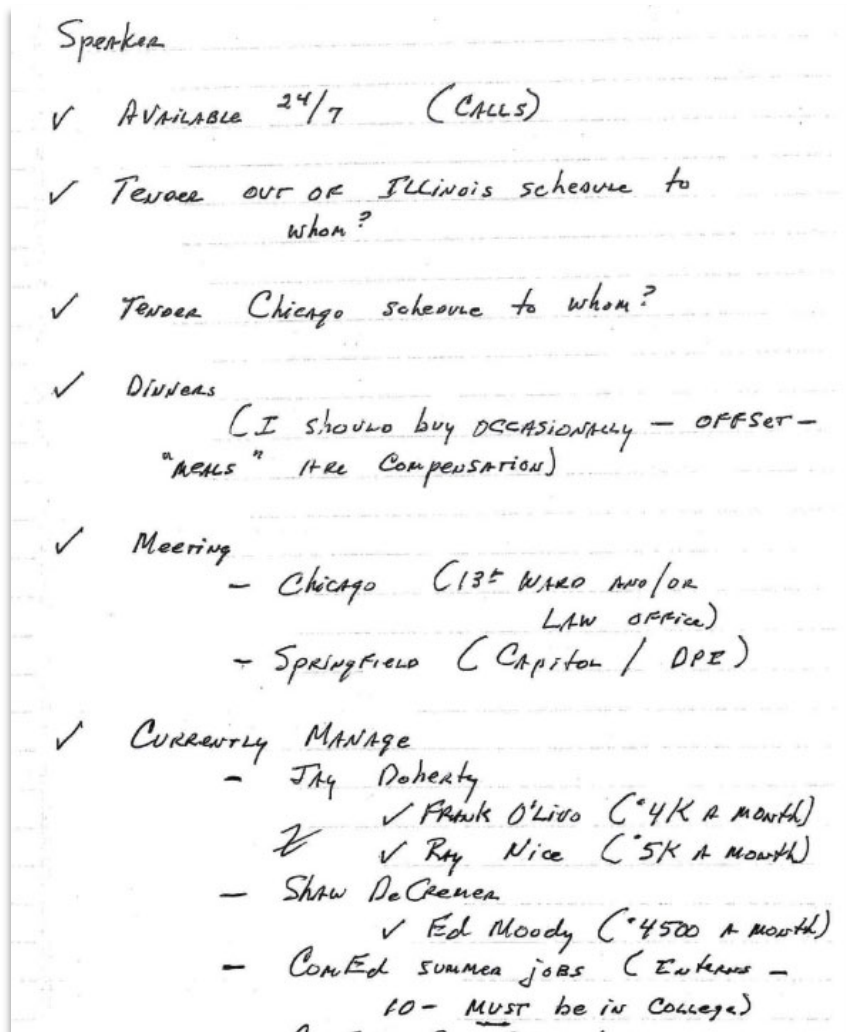 Speaker
✓ AVAILABLE 24/7 (CALLS)
✓ TENDER OUT OF ILLINOIS schedule to
whom?
✓ TENDER Chicago schedule to whom?
✓ DINNERS
(I should buy OCCASIONALLY - OFFSET -
"MEALS" ARE COMPENSATION)
✓ Meeting
- Chicago (13th WARD AND/OR
LAW OFFICE)
- SPRINGFIELD (CAPITOL / DPI)
✓ CURRENTLY MANAGE
- JAY Doherty
✓ FRANK O'LIVO ($4K A MONTH)
✓ RAY Nice ($5K A MONTH)
- SHAW DeCREMER
✓ Ed Moody ($4500 A MONTH)
- ComEd summer jobs (INTERNS -
10 - MUST be in College)